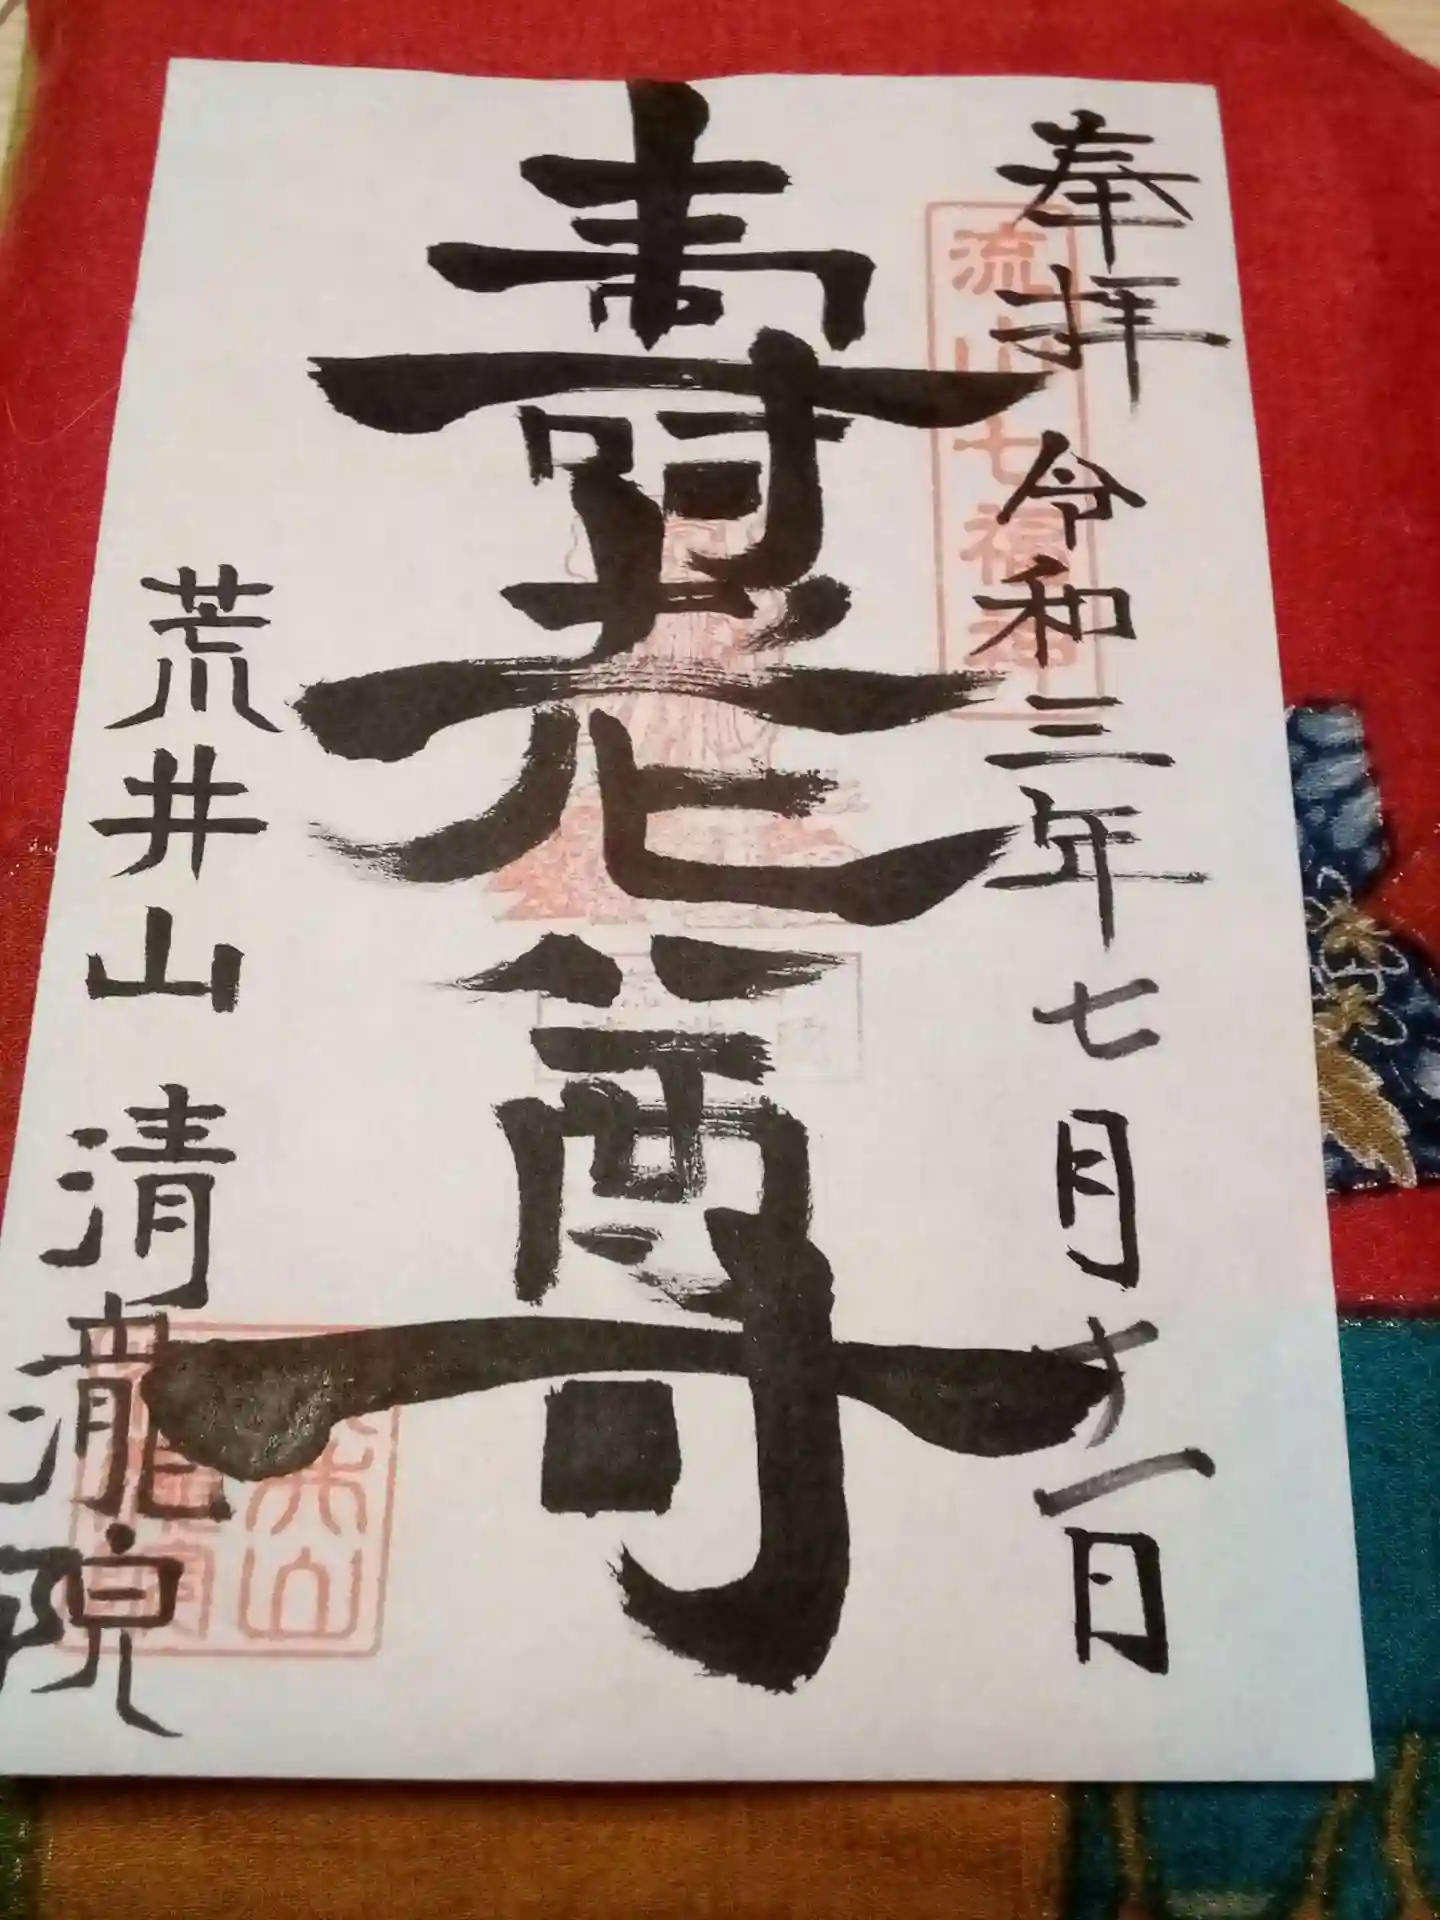 奉拝 令和三年七月十一日
流山七福神
壽老尊
荒井山 清瀧院